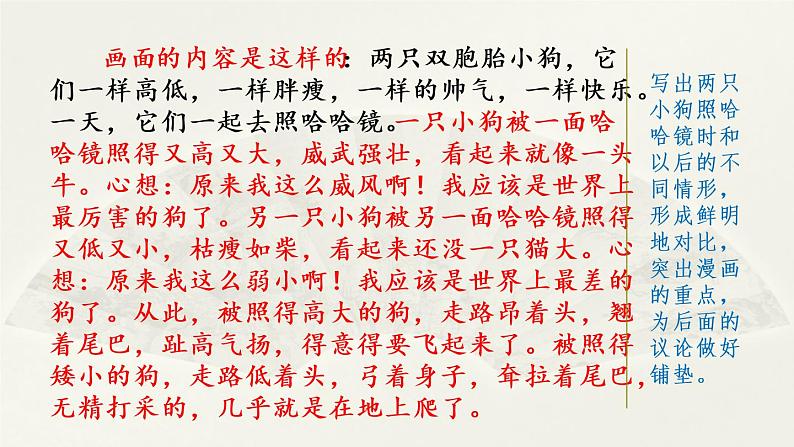 画面的内容是这样的：两只双胞胎小狗，它
们一样高低，一样胖瘦，一样的帅气，一样快乐。
一天，它们一起去照哈哈镜。一只小狗被一面哈
哈镜照得又高又大，威武强壮，看起来就像一头
牛。心想：原来我这么威风啊！我应该是世界上
最厉害的狗了。另一只小狗被另一面哈哈镜照得
又低又小，枯瘦如柴，看起来还没一只猫大。心
想：原来我这么弱小啊！我应该是世界上最差的
狗了。从此，被照得高大的狗，走路昂着头，翘
着尾巴，趾高气扬，得意得要飞起来了。被照得
矮小的狗，走路低着头，弓着身子，耷拉着尾巴，
无精打采的，几乎就是在地上爬了。
写出两只
小狗照哈
哈镜时和
以后的不
同情形，
形成鲜明
地对比，
突出漫画
的重点，
为后面的
议论做好
铺垫。